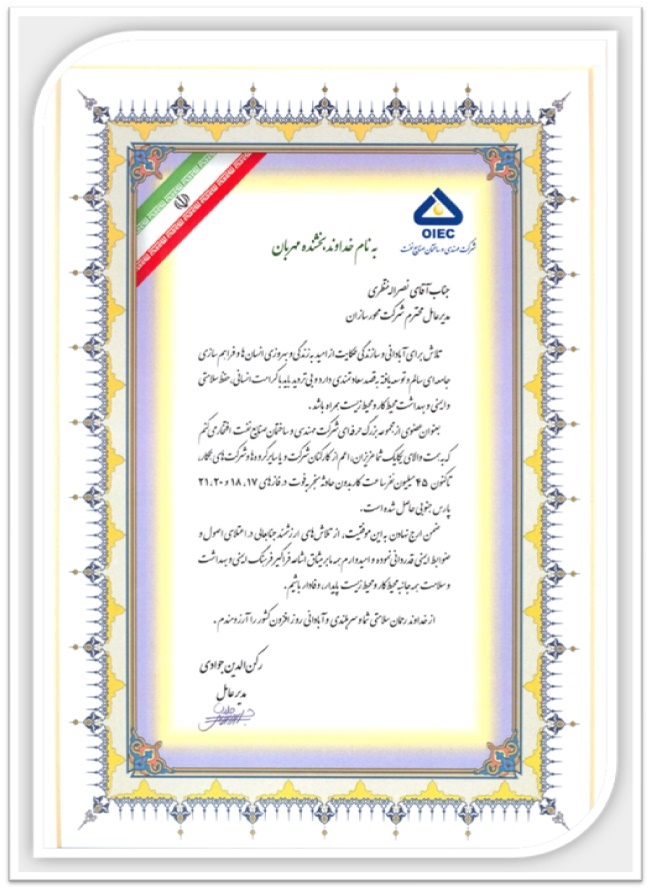 OIEC
شرکت مهندسی و ساختمان صنایع نفت
به نام خداوند بخشنده مهربان
جناب آقای نصراله منتظری
مدیرعامل محترم شرکت محورسازان
تلاش برای آبادانی و سازندگی حکایت از امید به زندگی و بهروزی انسان ها و فراهم سازی
جامعه ای سالم و توسعه یافته به قصد سعادتمندی دارد و بی تردید باید با کرامت انسانی، حفظ سلامتی
و ایمنی و بهداشت محیط کار و محیط زیست همراه باشد.
بعنوان عضوی از مجموعه بزرگ حرفه ای شرکت مهندسی و ساختمان صنایع نفت افتخار می کنم
که به همت والای یکایک شما عزیزان، اعم از کارکنان شرکت و یا سایر گروه ها و شرکت های همکار،
تاکنون ۴۵ میلیون نفر ساعت کار بدون حادثه منجر به فوت در فازهای ۱۷، ۱۸ و ۲۰، ۲۱
پارس جنوبی حاصل شده است.
ضمن ارج نهادن به این موفقیت، از تلاش های ارزشمند جنابعالی در اعتلای اصول و
ضوابط ایمنی قدردانی نموده و امیدوارم همه ما بر میثاق اشاعه فراگیر فرهنگ ایمنی و بهداشت
و سلامت همه جانبه محیط کار و محیط زیست پایدار، وفادار باشیم.
از خداوند رحمان سلامتی شما و سربلندی و آبادانی روز افزون کشور را آرزومندم.
رکن الدین جوادی
مدیرعامل